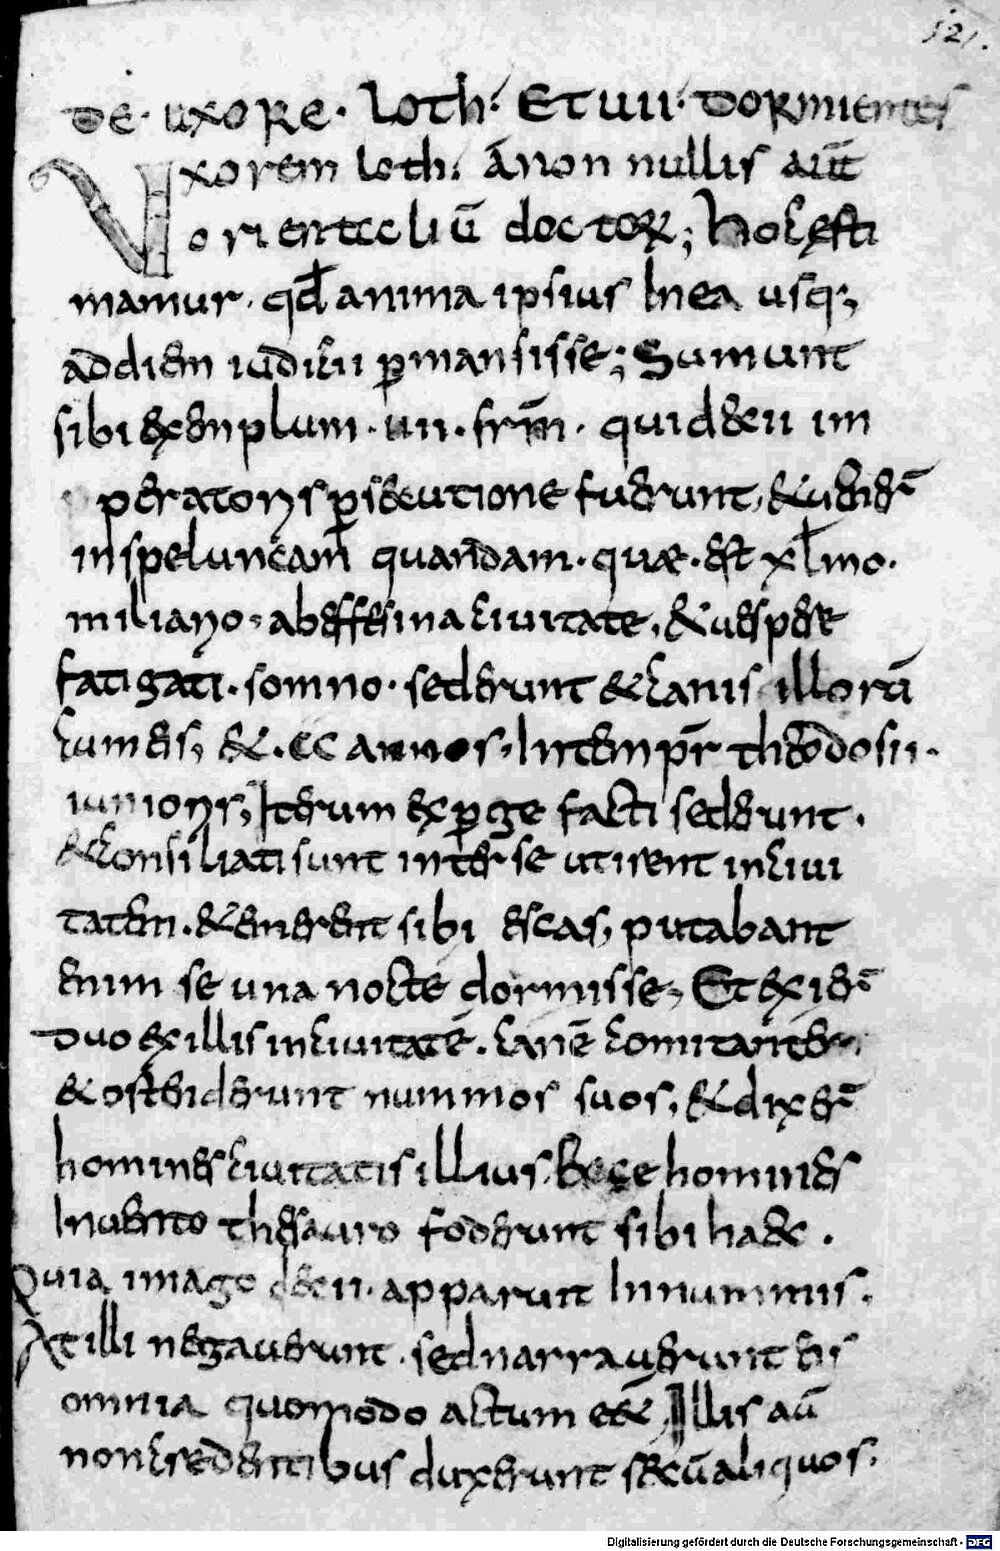 121.
De · uxore · Loth · Et uii · dormientes
Vxorem loth · a non nullis aut
orientaliū doctoꝝ; hoc esti
mamur · qđ anima ipsius In ea usq;
ad diem iudicii ꝑmansisse; Sumunt
sibi exemplum · uii · frm̄ · qui decii im
peratoris ꝑsecutione fuerunt, &
in speluncam quandam · quæ · est xl mo ·
miliario · ab effesina ciuitate, & uespere
fatigati · somno · sederunt & canis illorū
cum eis, & · cc annos · In temp̄r theodosii ·
iunioris, Iterum exꝑge facti sederunt ·
& consiliati sunt inter se ut irent in ciui
tatem · & emerent sibi escas, putabant
enim se una nocte dormisse, Et exier̄
duo ex illis in ciuitatē · canē comitante
& ostenderunt nummos suos, & dixer̄
homines ciuitatis illius · Ecce homines
Inuento thesauro foderunt sibi haec ·
Quia imago decii · apparuit In nummis ·
At illi negauerunt · sed narrauerunt eis
omnia quomodo actum eēt, Illis aū
non credentibus duxerunt secū aliquos ·
Digitalisierung gefördert durch die Deutsche Forschungsgemeinschaft - DFG